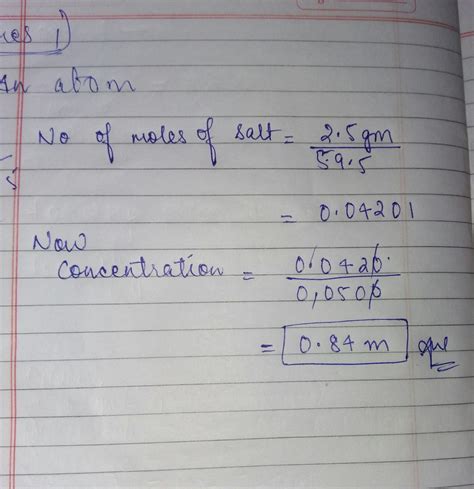 1)
An atom
No of moles of salt = 2.5gm
59.5
= 0.04201
Now
Concentration = 0.0420
0,0500
= 0.84 m